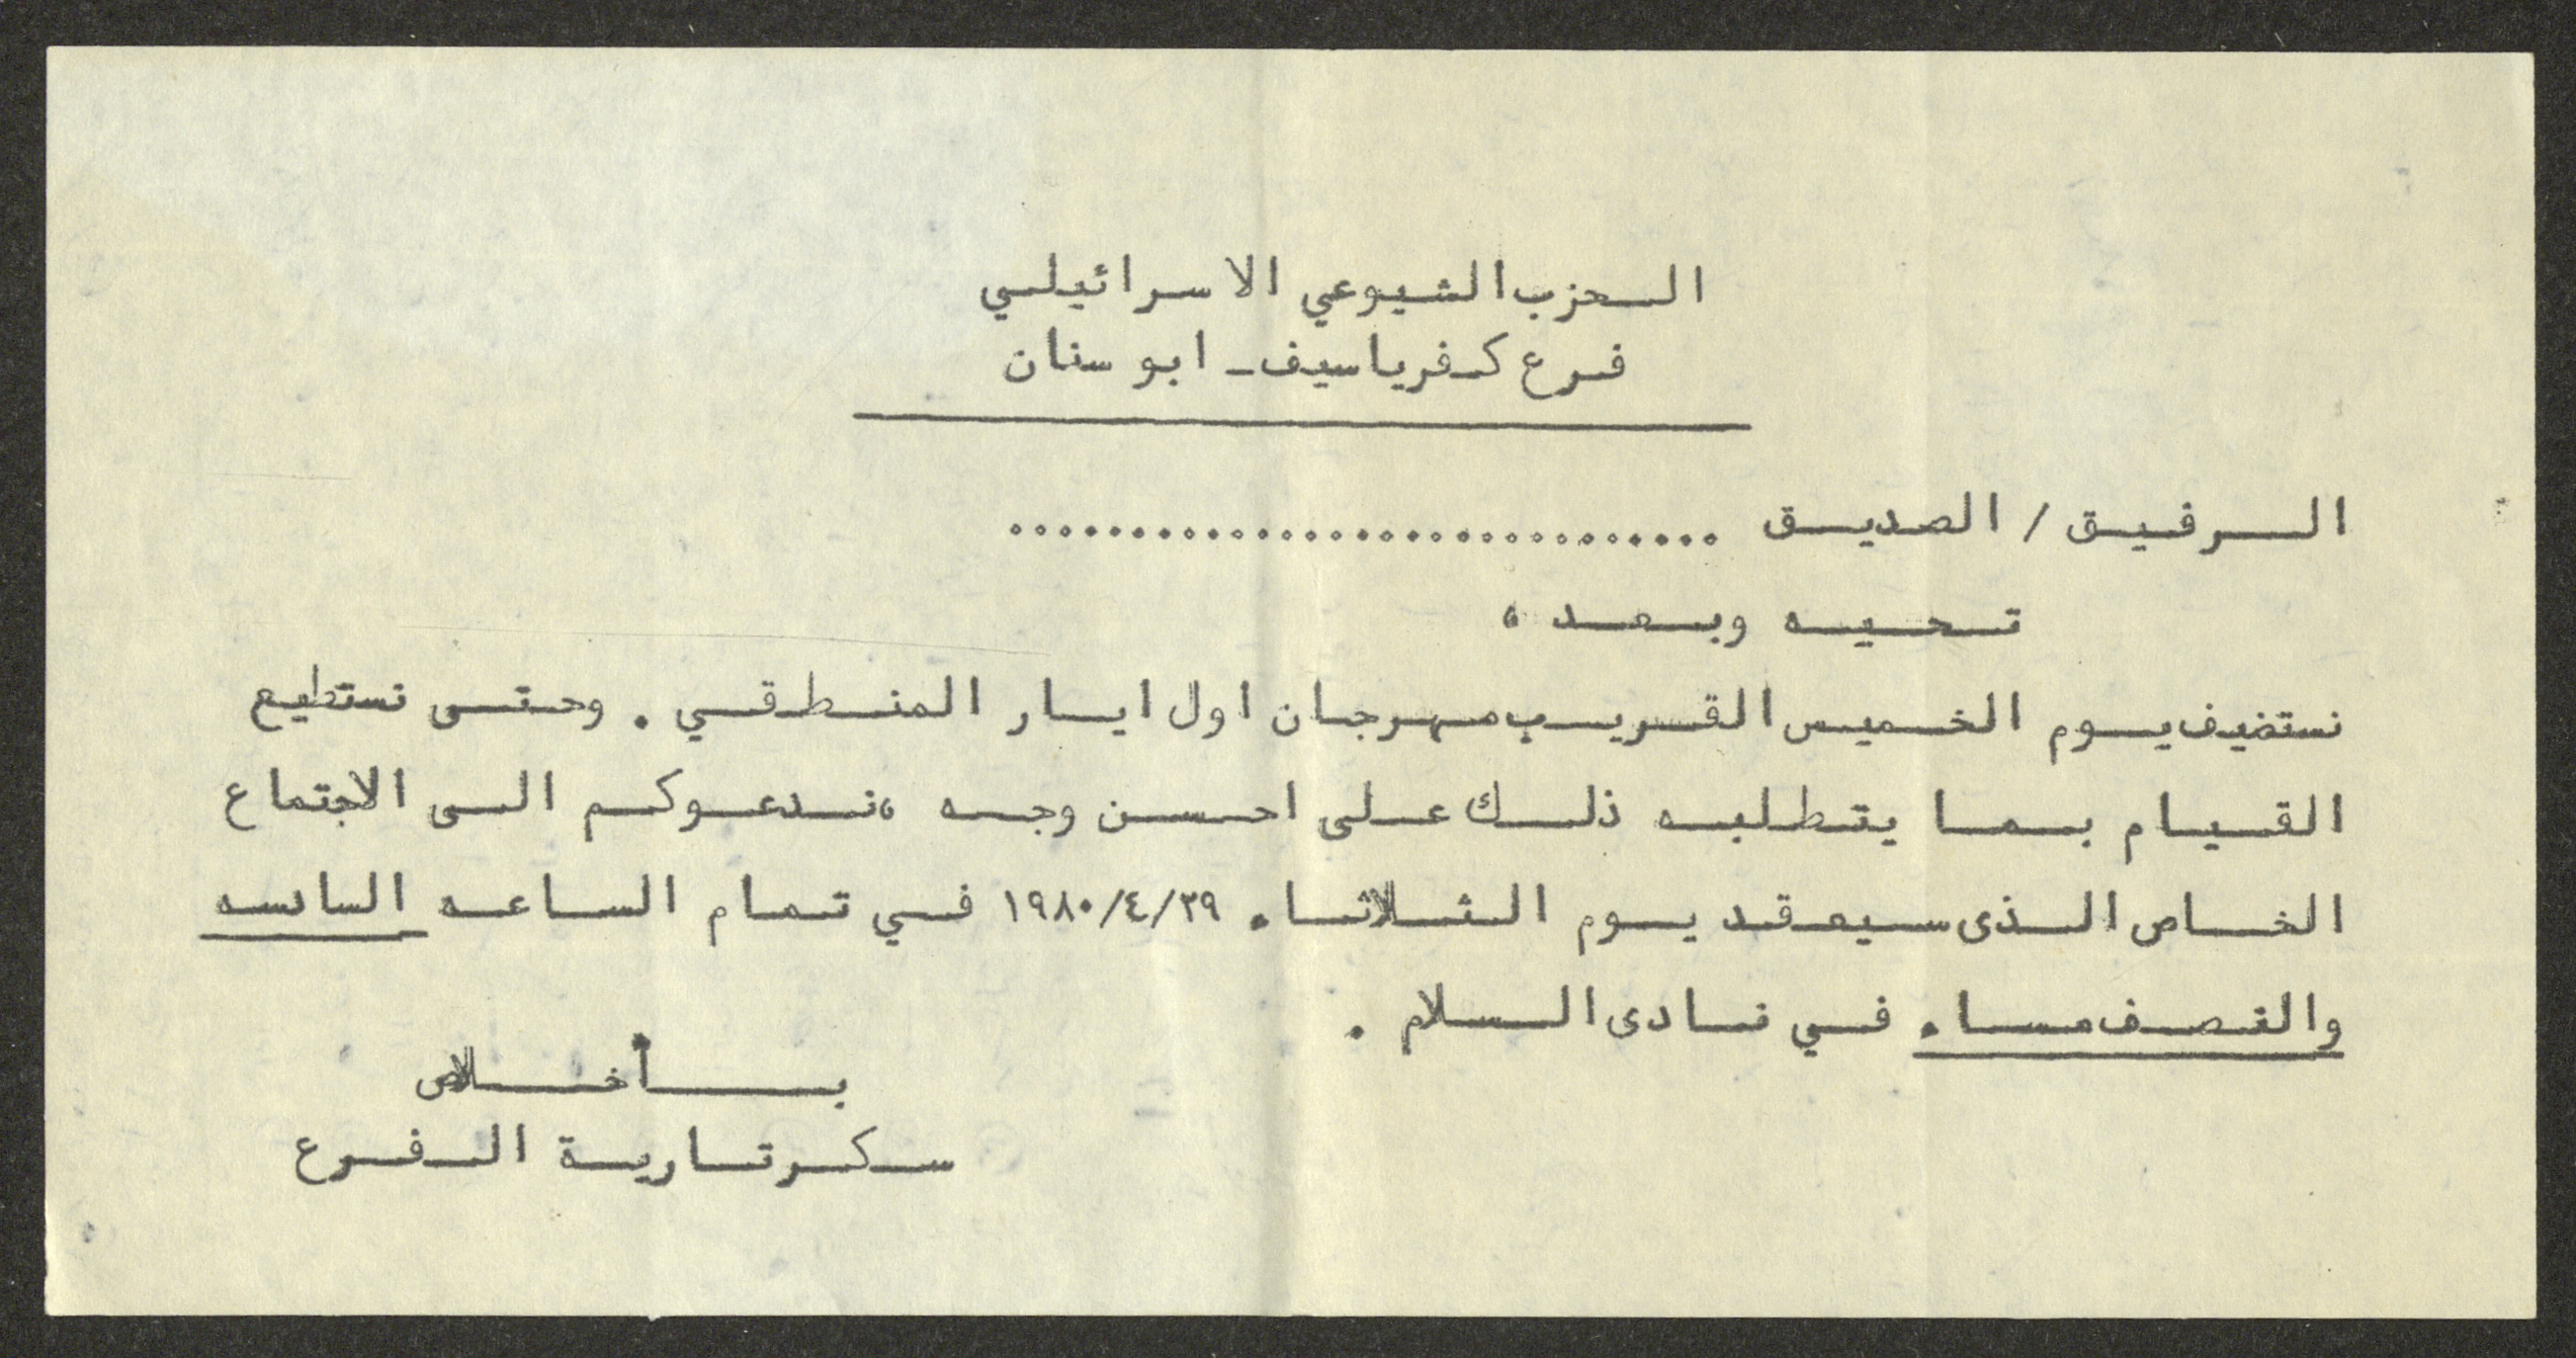 الحزب الشيوعي الاسرائيلي
فرع كفرياسيف - ابو سنان
الرفيق / الصديق .............................
تحيه وبعد ،
نستضيف يوم الخميس القريب مهرجان اول ايار المنطقي . وحتى نستطيع
القيام بما يتطلبه ذلك على احسن وجه ،ندعوكم الى الاجتماع
الخاص الذى سيعقد يوم الثلاثاء ١٩٨٠/٤/٢٩ في تمام الساعه السادسه
والنصف مساء في نادى السلام .
بأخلاص
سكرتارية الفرع